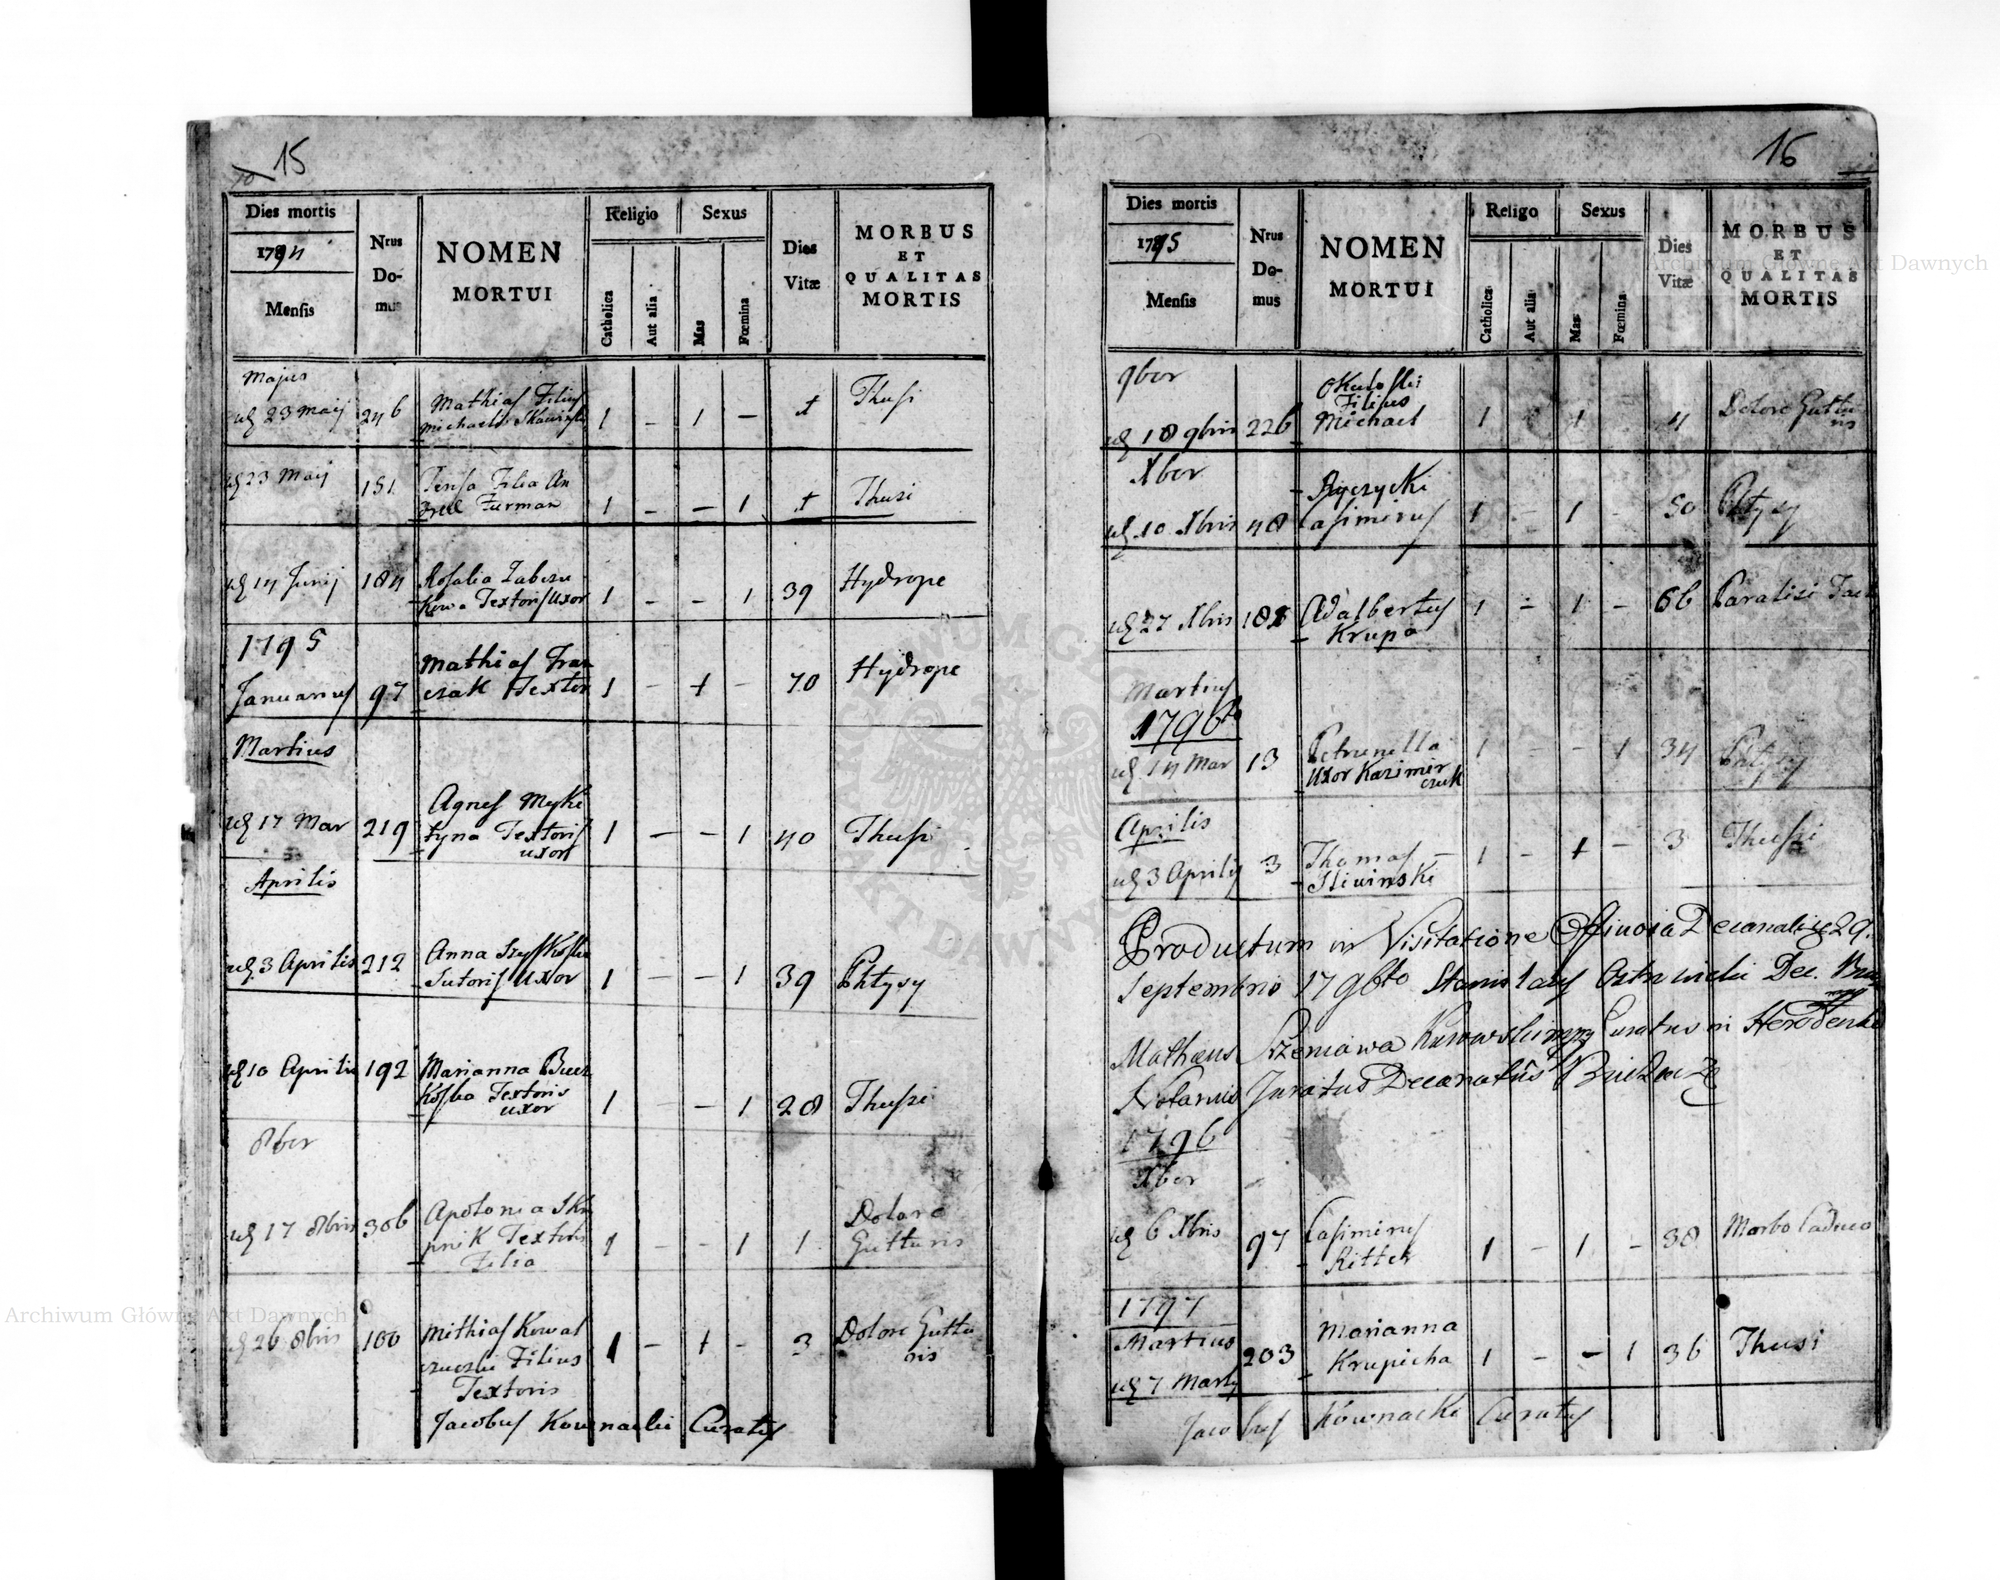 15
Dies mortis
1794
Mensis
Nrus
Do-
mus
NOMEN
MORTUI
Religio
Catholica
Aut alia
Sexus
Mas
Fœmina
Dies
Vitæ
MORBUS
ET
QUALITAS
MORTIS
Majus
23 Maij 246 Mathias Filius 1 - 1 - Thusi
Michaelis
23 Maij 151 Filia An 1 - - 1 Thusi
Furman
14 Junij 184 Rosalia Zabczu 1 - - 1 39 Hydrope
Kowa Textoris Uxor
1795
Januarius 97 Mathias Fran 1 - 1 - 70 Hydrope
czak Textor
Martius
17 Mar 219 Agnes Myke 1 - - 1 40 Thusi
tyna Textoris
uxor
Aprilis
3 Aprilis 212 Anna 1 - - 1 39 Phtysy
Sutoris Uxor
10 Aprilis 192 Marianna Bucz 1 - - 1 28 Thusi
Koska Textoris
uxor
8ber
17 8bris 306 Apolonia Sko 1 - - 1 1 Dolore
pnik Textoris Gutturis
Filia
26 8bris 100 Mathias Kowal 1 - 1 - 3 Dolore Guttu
czuczki Filius ris
Textoris
Jacobus Kownacki Curatus
16
Dies mortis
1795
Mensis
Nrus
Do-
mus
NOMEN
MORTUI
Religo
Catholica
Aut alia
Sexus
Mas
Fœmina
Dies
Vitæ
MORBUS
ET
QUALITAS
MORTIS
9ber
18 9bris 226 Okuloski 1 1 4 Dolore Guttu
Filipus ris
Michael
Xber
10 Xbris 48 Ryczycki 1 - 1 - 50 Phtysy
Casimirus
27 Xbris 182 Adalbertus 1 - 1 - 66 Paralisi
Krupa
Martius
1796to
14 Mar 13 Petrunella 1 - - 1 34 Phtysy
Uxor Kazimir
czuk
Aprilis
3 Aprilis 3 Thomas 1 - 1 - 3 Thusi
Sliwinski
Productum in Visitatione Officiosa Decanali 29
Septembris 1796to Stanislaus Dec.
Mathæus Szeniawa Kurowski mp Curatus in
Notarius Juratus Decanatus
1796
Xber
6 Xbris 97 Casimirus 1 - 1 - 38 Morbo Caduco
Ritter
1797
Martius
7 Martij 203 Marianna 1 - - 1 36 Thusi
Krupicha
Jacobus Kownacki Curatus
Archiwum Główne Akt Dawnych
Archiwum Główne Akt Dawnych